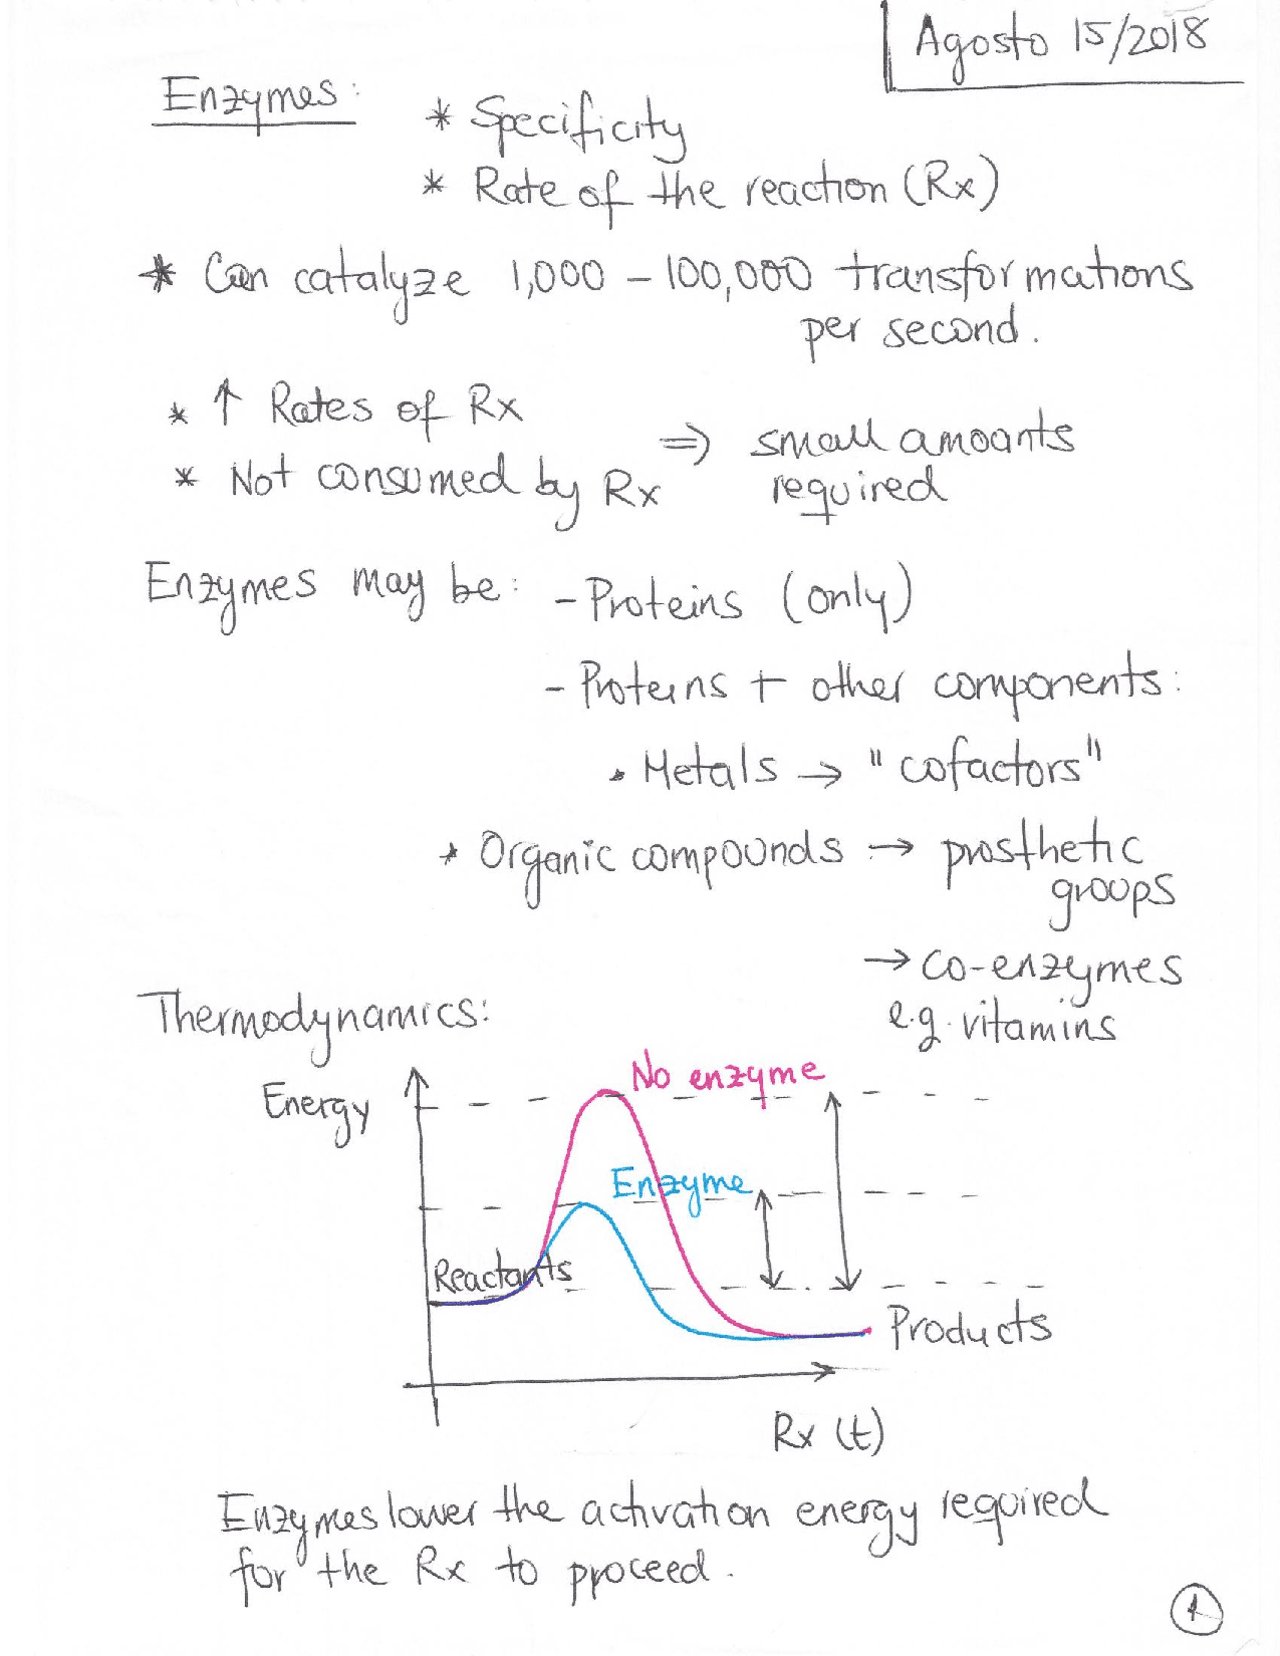 Agosto 15/2018
Enzymes:
* Specificity
* Rate of the reaction (Rx)
* Can catalyze 1,000 – 100,000 transformations
per second.
* ↑ Rates of Rx
* Not consumed by Rx
⇒ small amounts
required
Enzymes may be: - Proteins (only)
- Proteins + other components:
• Metals → "cofactors"
* Organic compounds → prosthetic
groups
→ co-enzymes
e.g. vitamins
Thermodynamics:
Energy
No enzyme
Enzyme
Reactants
Products
Rx (t)
Enzymes lower the activation energy required
for the Rx to proceed.
1